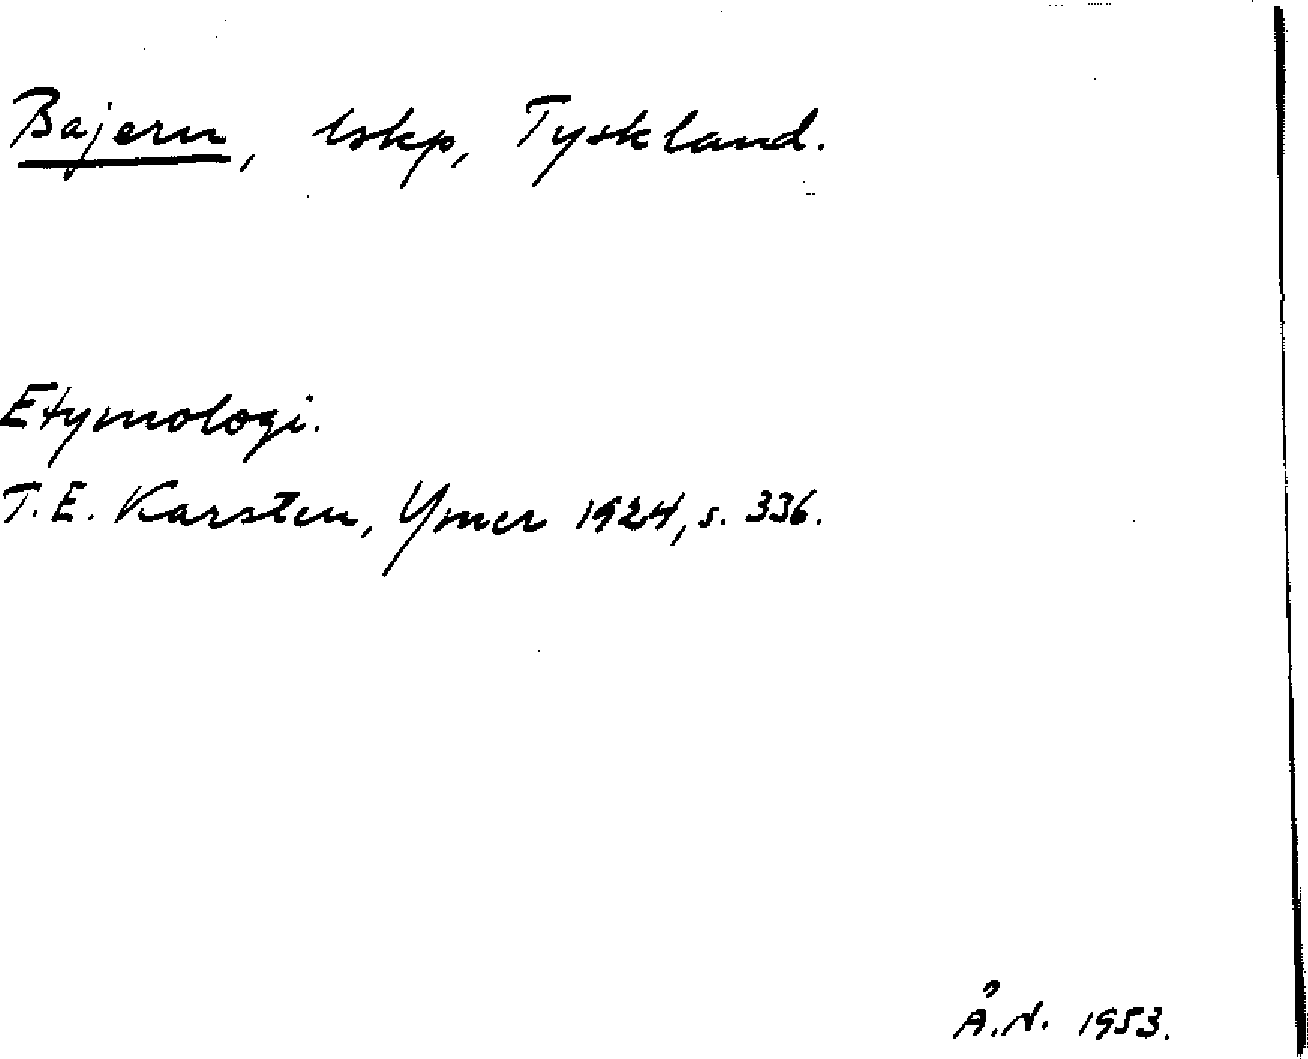 Bajern, lskp, Tyskland.
Etymologi.
T.E. Karsten, Ymer 1924, s. 336.
Å.N. 1953.